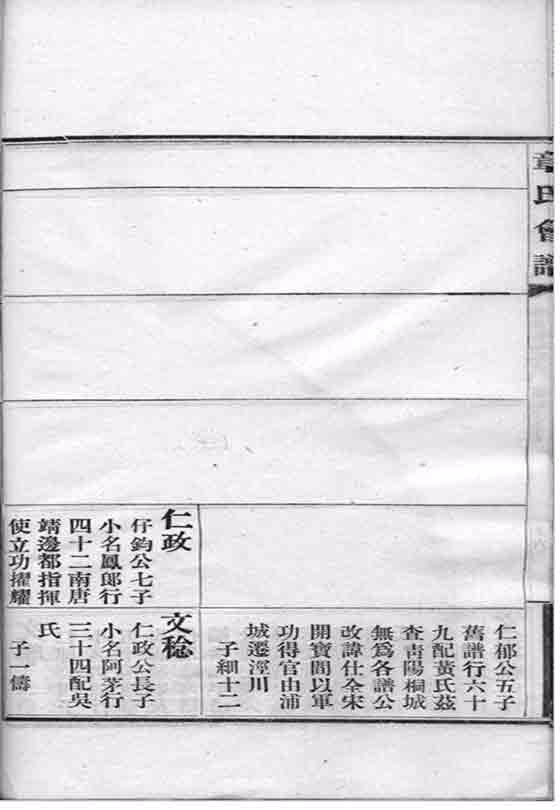 章氏會譜
仁政
仔鈞公七子
小名鳳郎行
四十二南唐
靖邊都指揮
使立功擢耀
仁郁公五子
舊譜行六十
九配黃氏茲
查青陽桐城
無爲各譜公
改諱仕全宋
開寶間以軍
功得官由浦
城遷涇川
子細十二
文稔
仁政公長子
小名阿茅行
三十四配吳
氏
子一儔